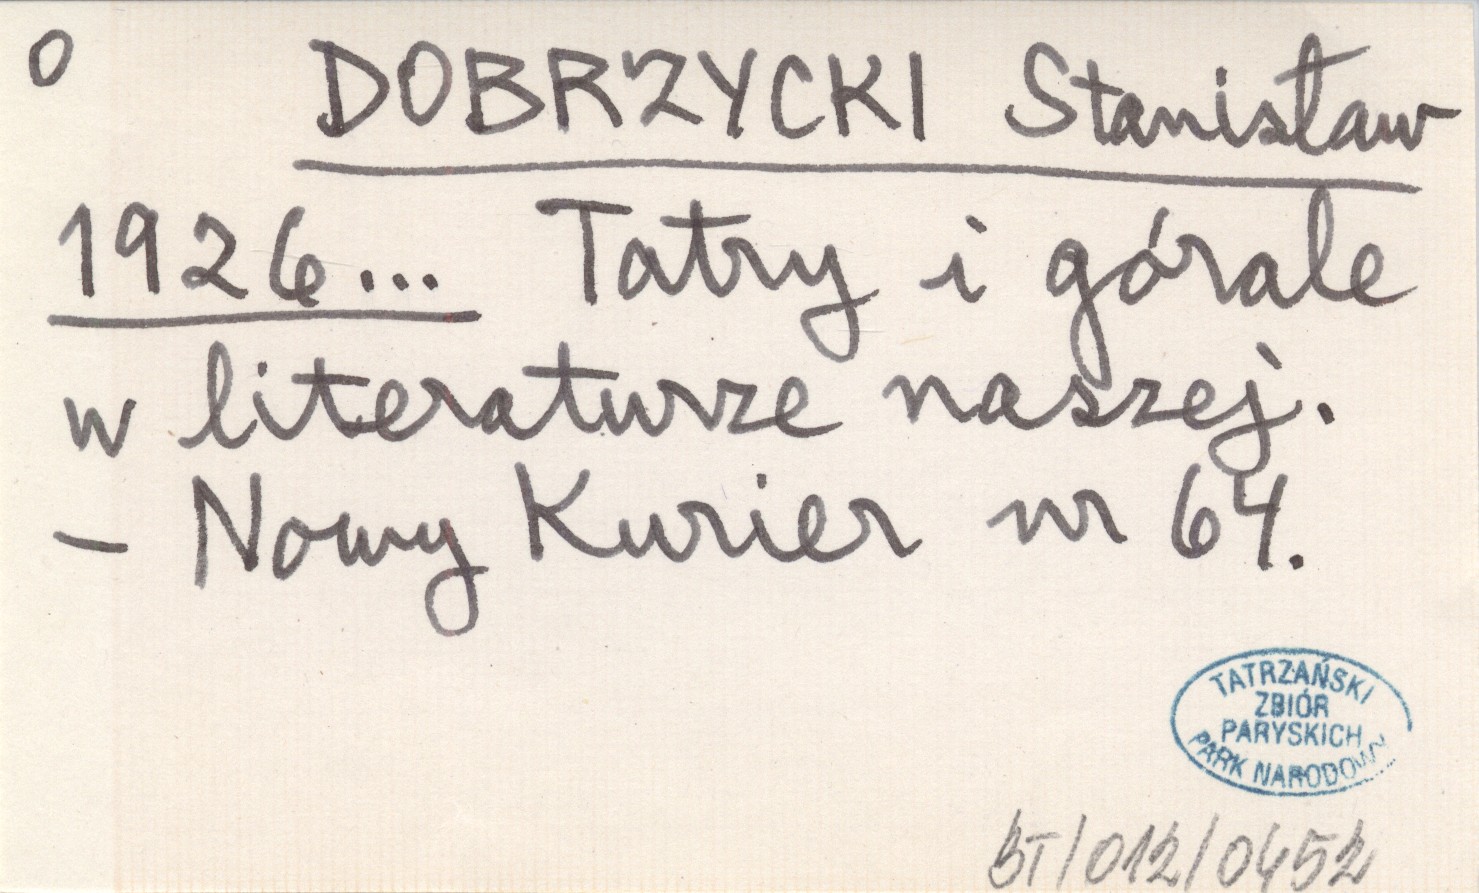 O DOBRZYCKI Stanisław
1926... Tatry i górale
w literaturze naszej.
– Nowy Kurier nr 64.
TATRZAŃSKI
ZBIÓR
PARYSKICH
PARK NARODOWY
BT/012/0452